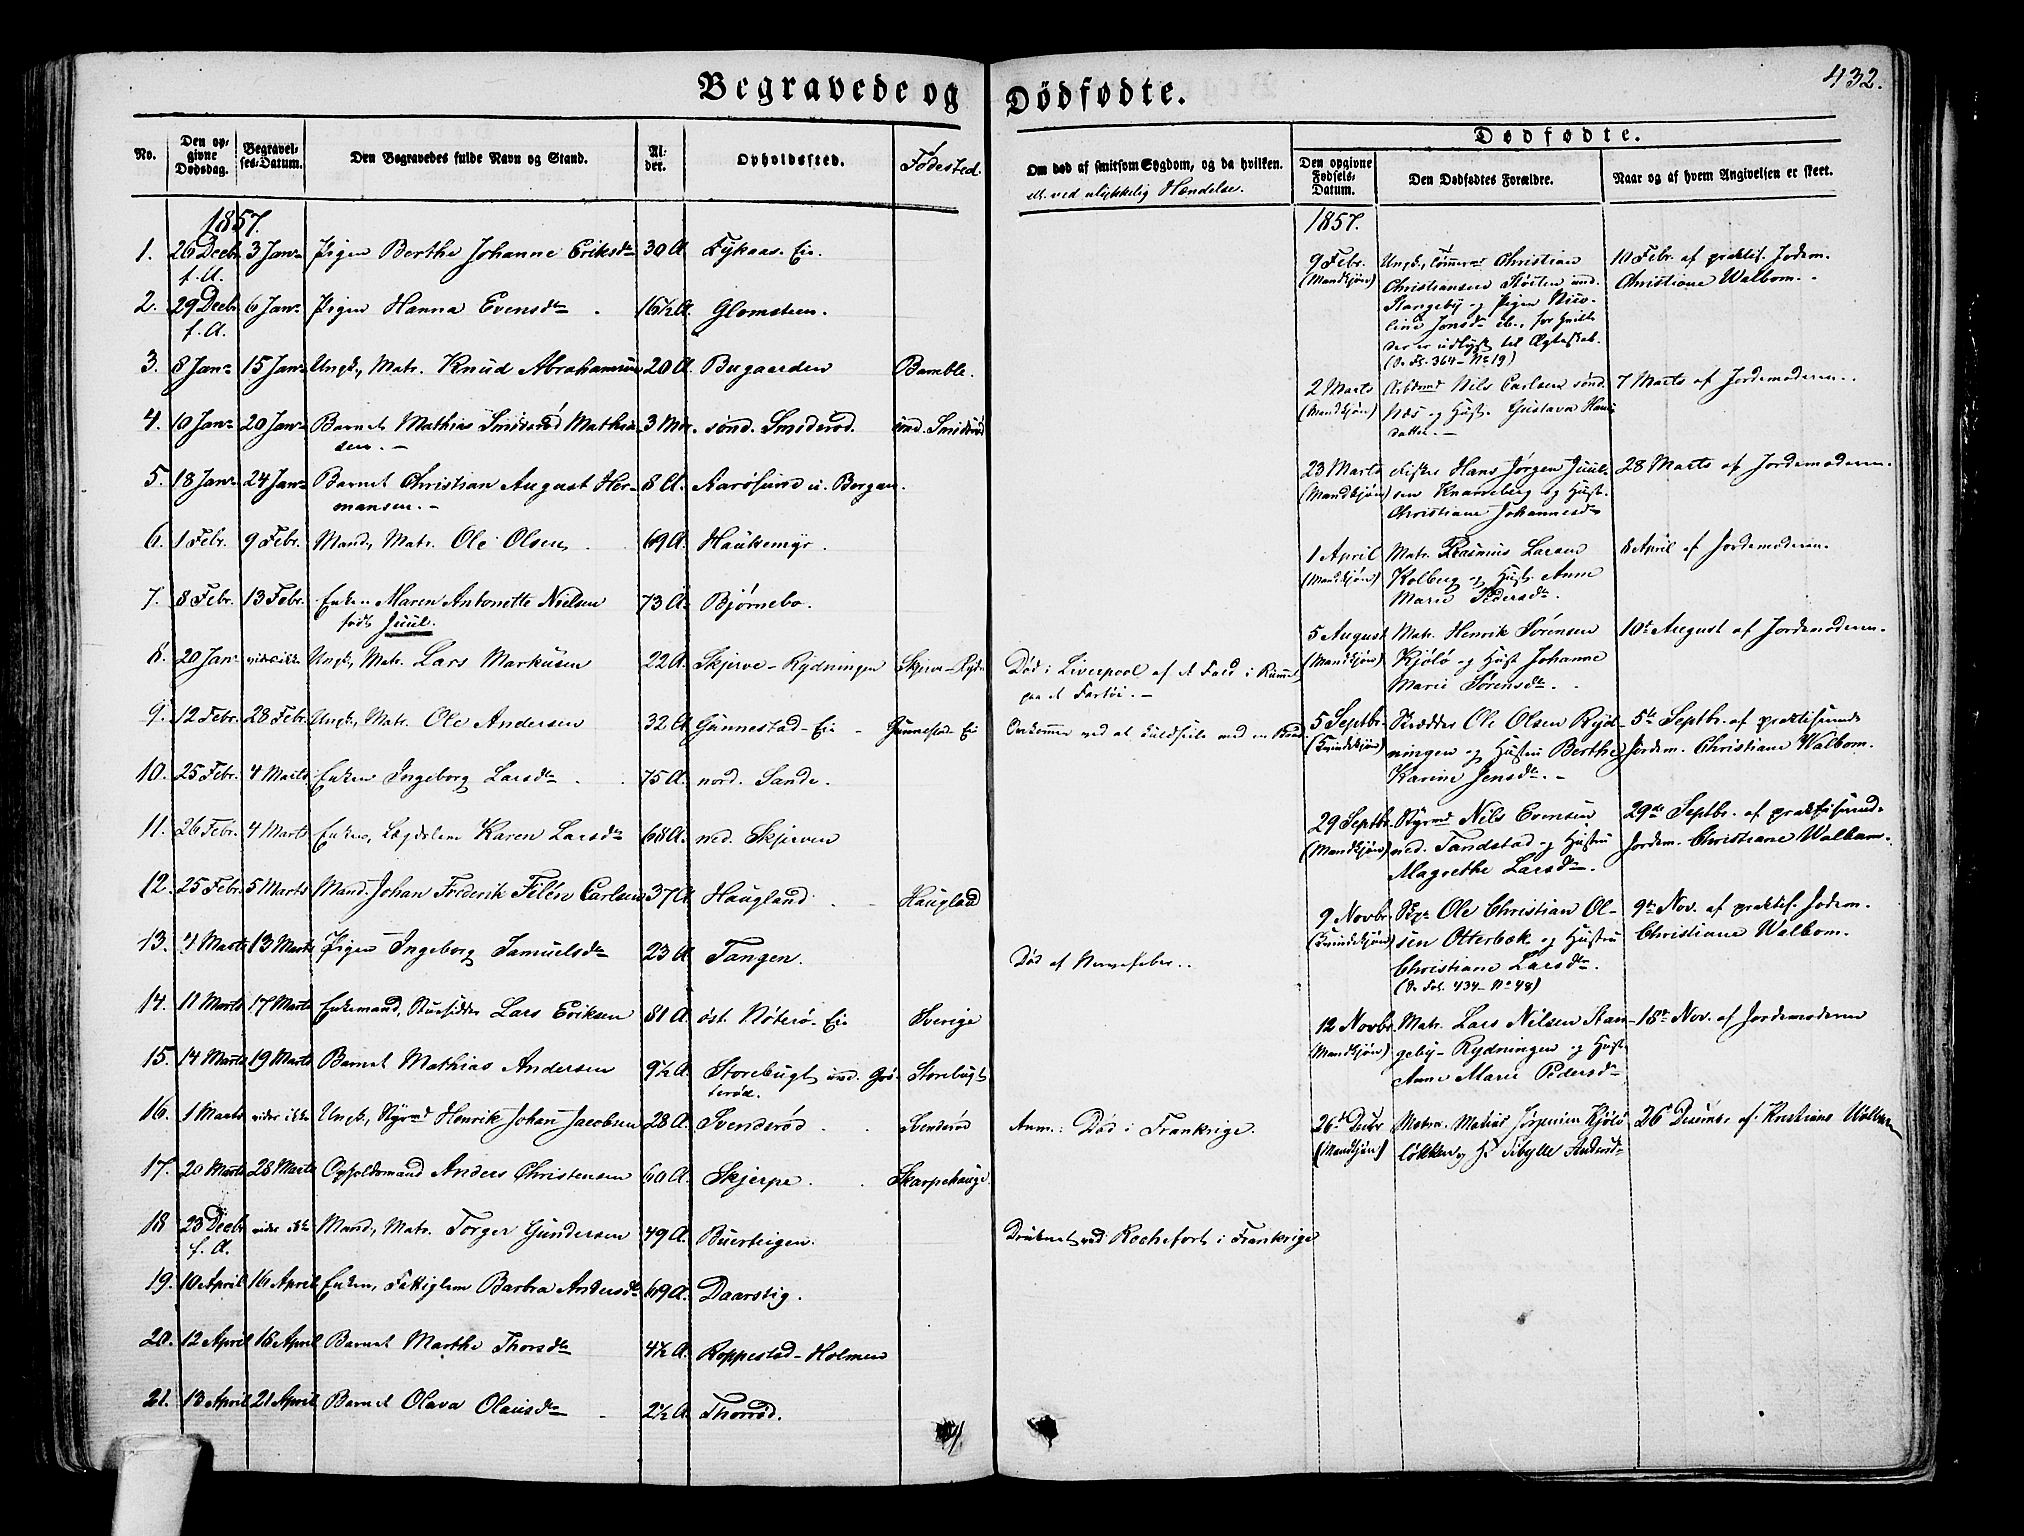 Begravede og Dødfødte.
432.
No.
Den opgivne Dødsdag.
Begravelses-Datum.
Den Begravedes fulde Navn og Stand.
Alder.
Opholdssted.
Fødested.
Om død af smitsom Sygdom, og da hvilken.
ell. ved ulykkelig Hændelse.
Dødfødte.
Den opgivne Fødsels-Datum.
Den Dødfødtes Forældre.
Naar og af hvem Angivelsen er skeet.
1857.
1. 26 Decb. f. A. 3 Janr Pigen Berthe Johanne Eriksdtr 30 A. Eie.
2. 29 Decbr f. A. 6 Janr Pigen Hanna Evensdtr 16½ A. Glomsteen.
3. 8 Janr 15 Janr Ungk., Matr. Knud Abrahamsen 20 A. Bugaarden Bamble.
4. 10 Janr 20 Janr Barnet Mathias Mathiasen. 3 Mdr. sønd. Smiderød. sønd. Smiderød
5. 18 Janr 24 Janr Barnet Christian August Hermansen. 8 A. Aarøsund u. Bergan.
6. 1 Febr. 9 Febr. Mand, Matr. Ole Olsen 69 A. Haukemyr.
7. 8 Febr. 13 Febr. Enken Maren Antonette Nielsen født Juul. 73 A. Bjørnebo.
8. 20 Janr vides ikke Ungk., Matr. Lars Markusen 22 A. Skjerve-Rydningen Skjerve-Rydn Død i Liverpool af et Fald i Rummet paa et Fartøi.
9. 12 Febr. 28 Febr. Ungk., Matr. Ole Andersen 32 A. Gunnestad-Eie Gunnestad-Ei Omkommen ved at kuldseile med en Baad
10. 25 Febr. 4 Marts Enken Ingeborg Larsdtr 75 A. nord. Sande.
11. 26 Febr. 4 Marts Enken, Lægdslem Karen Larsdtr 68 A. ned. Skjerven
12. 25 Febr. 5 Marts Mand. Johan Frederik Carlsen 37 A. Haugland Hauglad
13. 7 Marts 13 Marts Pigen Ingeborg Samuelsdtr 23 A. Tangen. Død af Nervefeber.
14. 11 Marts 17 Marts Enkemand, Huusidder Lars Eriksen 81 A. øst. Nøterø-Eie Sverige
15. 14 Marts 19 Marts Barnet Mathias Andersen 9½ A. Storebugt und. Grøterød. Storebugt
16. 1 Marts vides ikke Ungk., Styrmd Henrik Johan Jacobsen 28 A. Svenderød Svenderød Anm.: Død i Frankrige.
17. 20 Marts 28 Marts Opholdsmand Anders Christensen 60 A. Skjerpe. Skarpehauge
18 23 Decbr f. A. vides ikke Mand, Matr. Torger Gundersen 49 A. Buerteigen. Druknet ved Rochefort i Frankrige
19. 10 April 16 April Enken, Fattiglem Barbra Andersdtr 69 A. Daarstig.
20. 12 April 18 April Barnet Marthe Thorsdtr 4½ A. Roppestad-Holmen
21. 13 April 21 April Barnet Olava Olausdtr 2½ A. Thorrød.
1857.
9 Febr. (Mandkjøn) Ungk., Tømmermd Christian Christiansen und. Stangeby og Pigen Nicoline Jensdtr ib., for hvilke der er udlyst til Ægteskab. (Se Fol. 364 - No 19) 10 Febr. af praktis. Jordem. Christiane Walbom.
2 Marts (Mandkjøn) Arbdsmd Nils Carlsen sønd. Næs og Hustr. Gustava Hansdatter. 7 Marts af Jordemoderen.
23 Marts (Mandkjøn) Fisker Hans Jørgen Juulsen Knarreberg og Hustr. Christiane Johannesdtr 28 Marts af Jordemoderen.
1 April (Mandkjøn) Matr. Rasmus Larsen Kolberg og Hustr. Anne Marie Pedersdtr. 8 April af Jordemoderen.
5 August (Mandkjøn) Matr. Henrik Sørensen Kjølø og Hust Johanne Marie Sørensdtr. 10de August af Jordemoderen.
5 Septbr. (Kvindekjøn) Skrædder Ole Olsen Rydningen og Hustru Berthe Karine Jensdtr. 5te Septbr. af praktiserende Jordem. Christiane Walbom.
29 Septbr (Mandkjøn) Styrmd Nils Evensen ned. Tandstad og Hustru Magrethe Larsdtr. 29de Septbr. af praktiserende Jordem. Christiane Walbom.
9 Novbr (Kvindekjøn) Skpr Ole Christian Olsen Otterbæk og Hustru Christiane Larsdtr. (Se Fol. 434 - No 48) 9de Nov. af praktis. Jordem. Christiane Walbom.
12 Novbr (Mandkjøn) Matr. Lars Nilsen Stangeby-Rydningen og Hustr. Anne Marie Pedersdtr 18de Nov. af Jordemoderen
26d Decbr (Mandkjøn) Matr. Matias Jørgensen Kjøløløkken og H. Sibylle Andersd 26d Decembr. af Kristiane Walbom